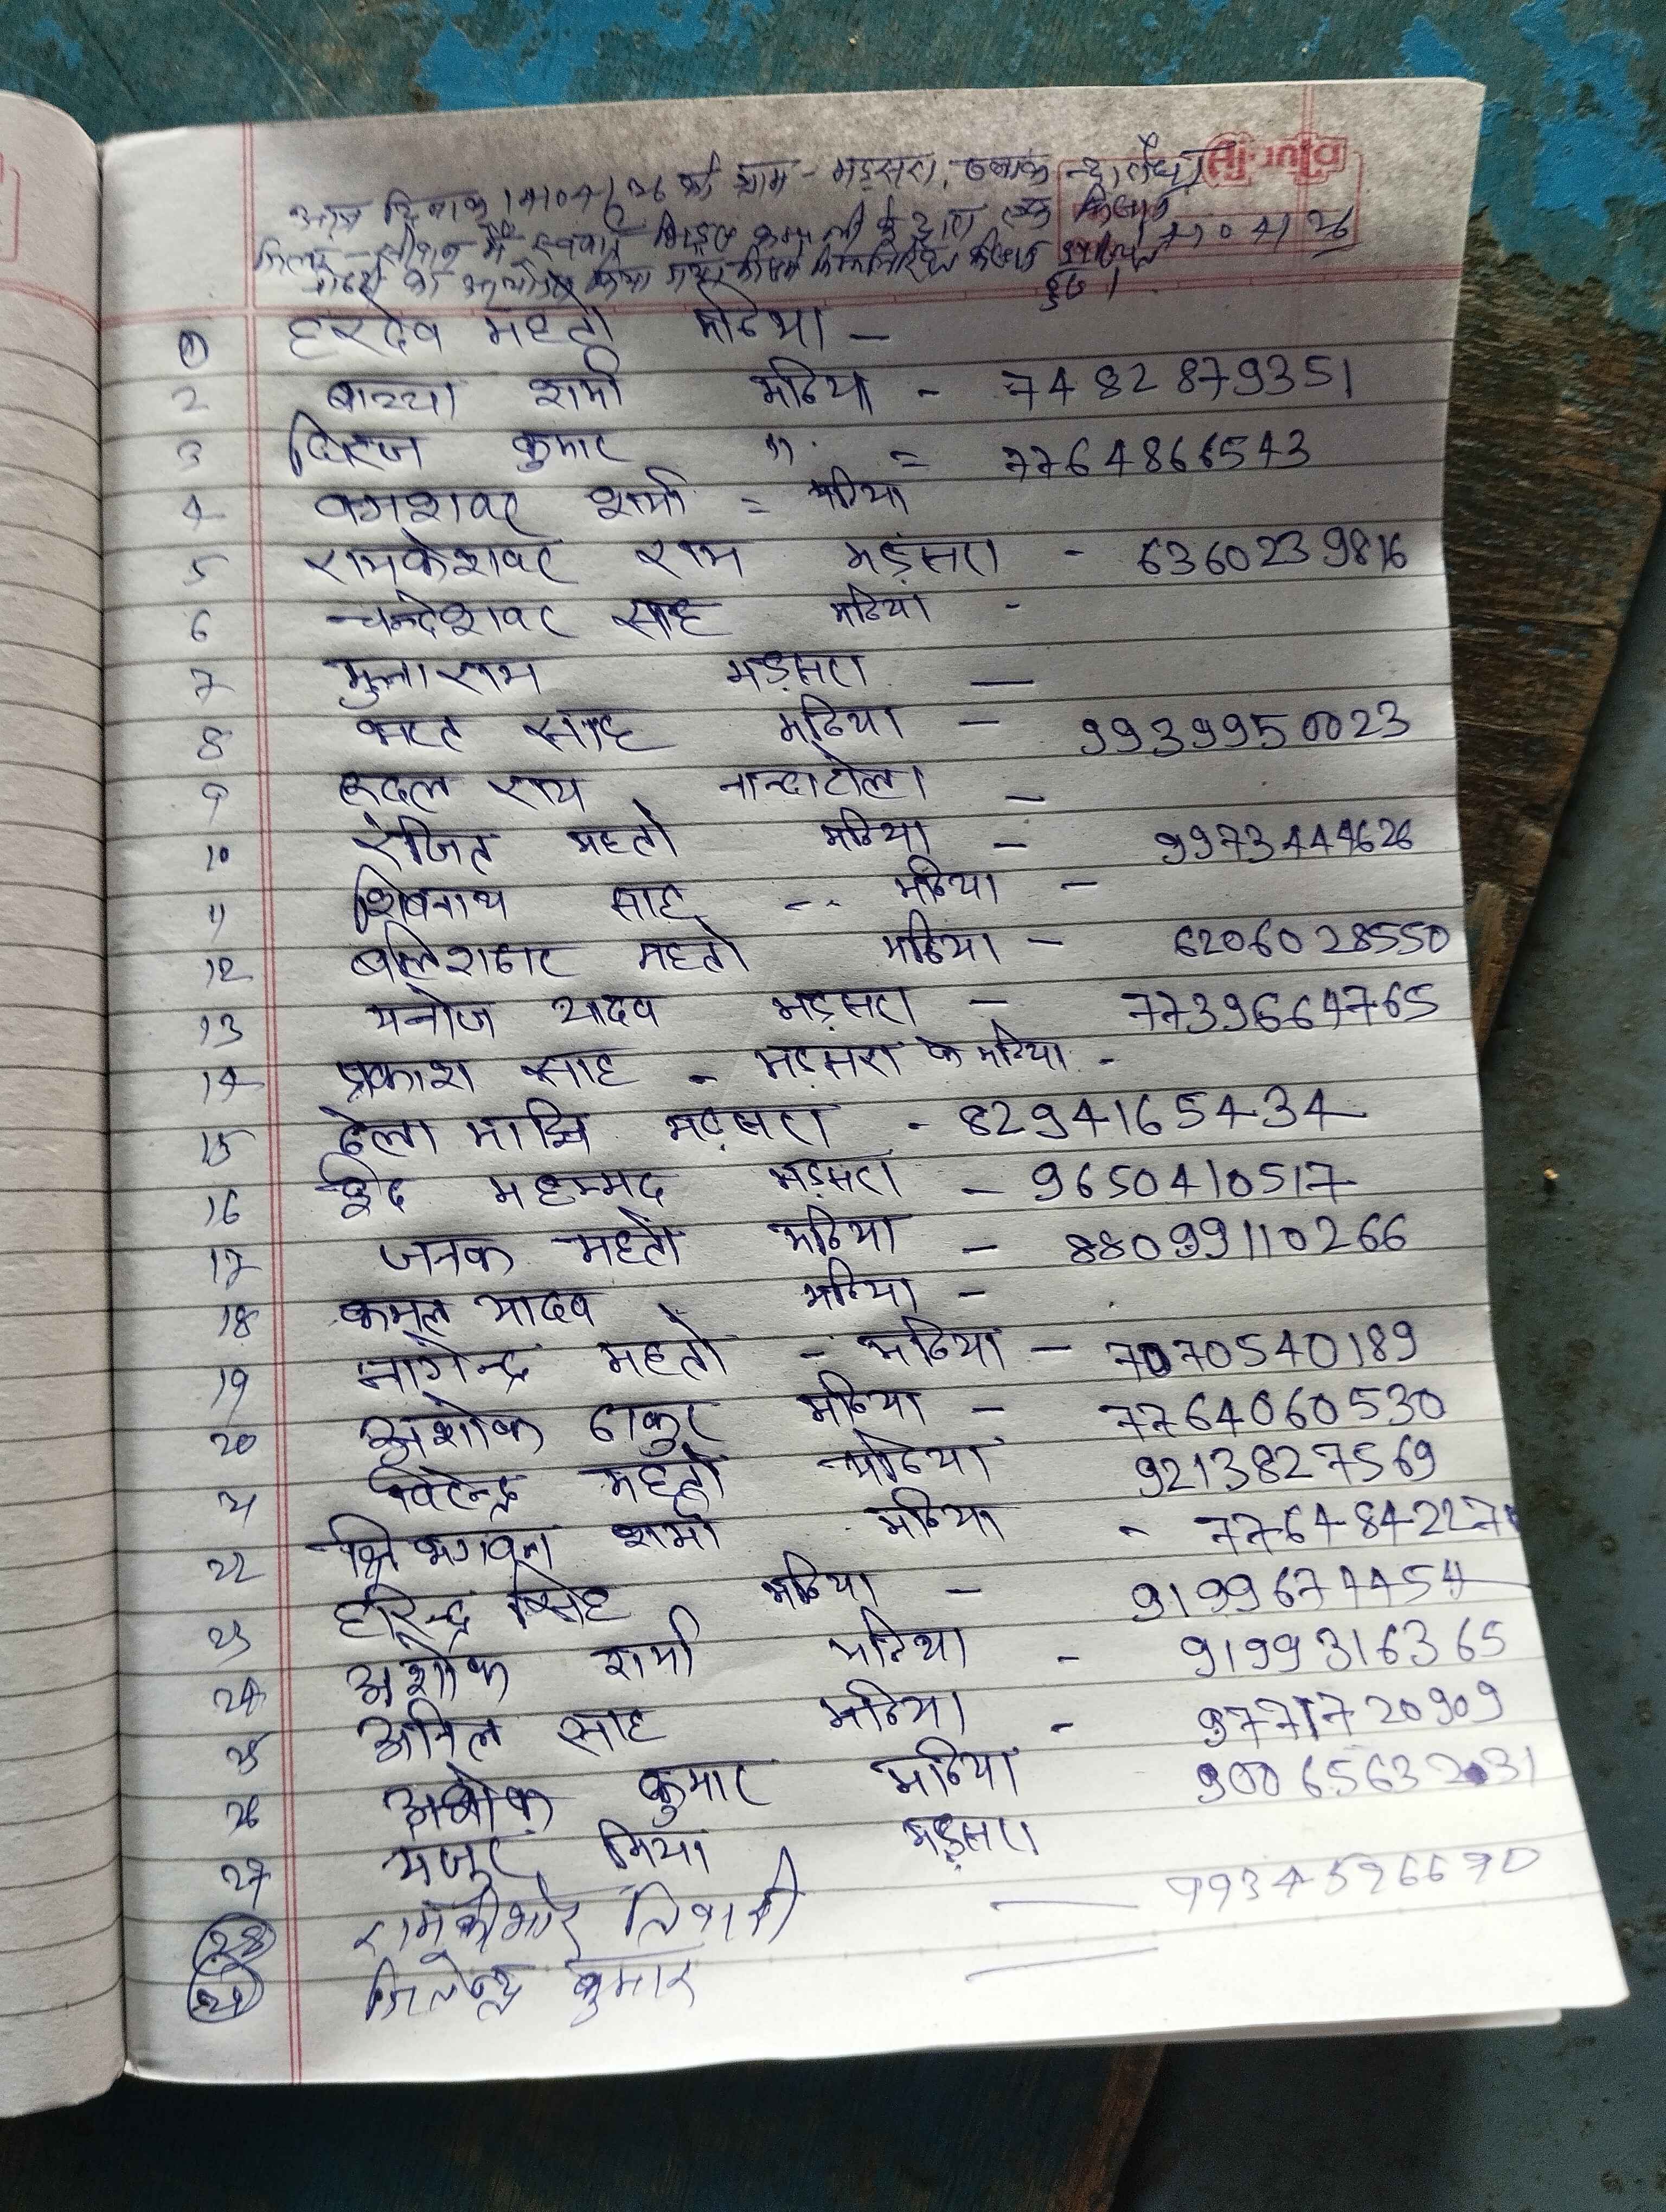 Ajanta
आज दिनांक 14/04/26 को ग्राम - मड़सरा,
जिला - सीवान में के द्वारा एक किसान 14/04/26
का आयोजन किया गया किसान उपस्थित
हुए।
① हरदेव महतो मठिया —
2 बाच्चा शर्मा मठिया - 7482879351
3 धिरज कुमार " = 7764866543
4 शर्मा = मठिया
5 रामकेशवर राम मड़सरा - 6360239816
6 चन्देशवर साह मठिया -
7 मुन्ना राम मड़सरा —
8 भरत साह मठिया — 9939950023
9 रुदल राय नान्दाटोला —
10 रंजित महतो मठिया — 9973444626
11 शिवनाथ साह -- मठिया —
12 महतो मठिया — 6206028550
13 मनोज यादव मड़सरा — 7739664765
14 प्रकाश साह - मड़सरा के मठिया -
15 ढेला माझि मड़सरा - 8294165434
16 ईद महम्मद मड़सरा — 9650410517
17 जनक महतो मठिया — 88099110266
18 कमल यादव मठिया —
19 नागेन्द्र महतो - मठिया — 7070540189
20 अशोक ठाकुर मठिया — 7764060530
21 महतो मठिया 9213827569
22 श्रि भगवान शर्मा मठिया - 776484227
23 हरिन्द्र सिंह मठिया — 9199674454
24 अशोक शर्मा मठिया - 9199316365
25 अनिल साह मठिया - 9771720909
26 अशोक कुमार मठिया 9006563231
27 मंजुर मिया मड़सरा
28 रामकिशोर तिवारी — 9934596690
29 जितेन्द्र कुमार —